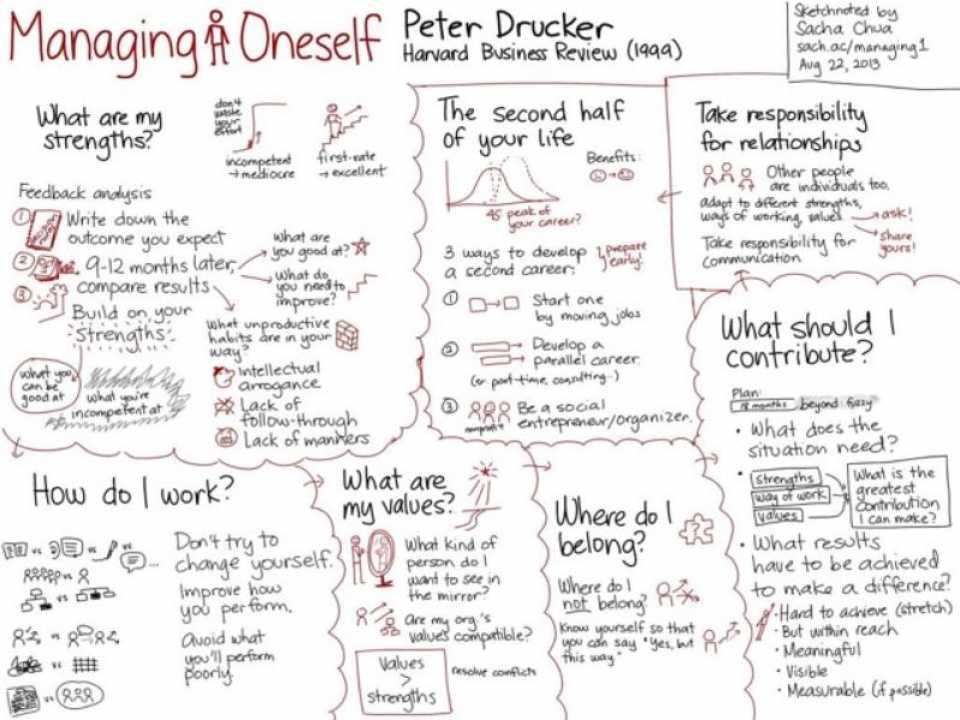 Managing Oneself
Peter Drucker
Harvard Business Review (1999)
Sketchnoted by
Sacha Chua
sach.ac/managing1
Aug 22, 2013
What are my
strengths?
don't
waste
your
effort
incompetent
→ mediocre
first-rate
→ excellent
Feedback analysis
1 Write down the
outcome you expect
2 9-12 months later,
compare results
3 Build on your
strengths
What are
you good at?
What do
you need to
improve?
What unproductive
habits are in your
way?
Intellectual
arrogance
Lack of
follow-through
Lack of manners
what you
can be
good at
what you're
incompetent at
The second half
of your life
Benefits:
45 peak of
your career?
3 ways to develop
a second career:
prepare
early!
1 Start one
by moving jobs
2 Develop a
parallel career
(or part-time, consulting...)
3 Be a social
entrepreneur/organizer.
nonprofit
Take responsibility
for relationships
Other people
are individuals too.
adapt to different strengths,
ways of working, values
→ ask!
→ share
yours!
Take responsibility for
communication
What should I
contribute?
Plan:
18 months beyond: fuzzy
• What does the
situation need?
• strengths
way of work
values
What is the
greatest
contribution
I can make?
• What results
have to be achieved
to make a difference?
• Hard to achieve (stretch)
• But within reach
• Meaningful
• Visible
• Measurable (if possible)
How do I work?
vs vs vs ...
vs
vs
vs
vs
vs
Don't try to
change yourself.
Improve how
you perform.
Avoid what
you'll perform
poorly.
What are
my values?
What kind of
person do I
want to see in
the mirror?
Are my org.'s
values compatible?
Values
>
strengths
resolve conflicts
Where do I
belong?
Where do I
not belong?
Know yourself so that
you can say "Yes, but
this way."